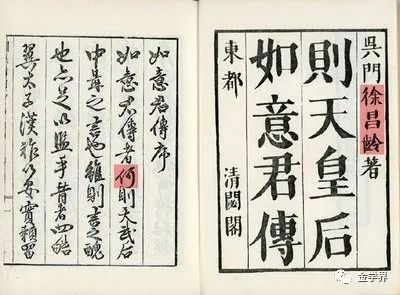 吳門徐昌齡著
則天皇后
如意君傳
東都 清閟閣
如意君傳序
如意君傳者何則天武后
中冓之言也雖則言之醜
也亦足以監乎昔者四皓
翼太子漢祚以安實賴留
金学界